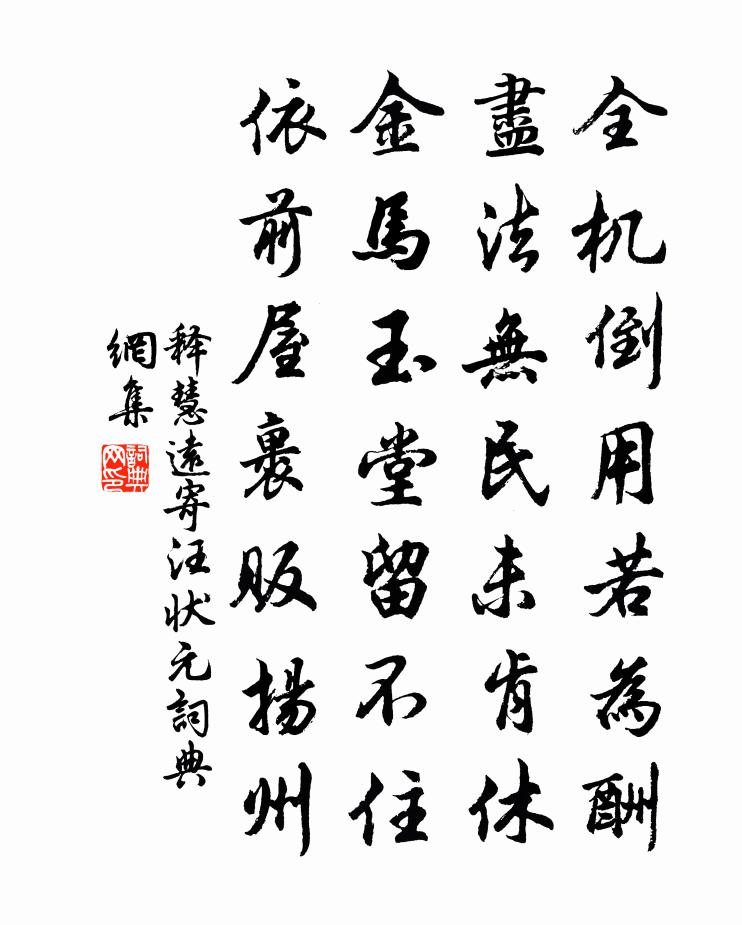 全机倒用若為酬
盡法無民未肯休
金馬玉堂留不住
依前屋裹販揚州
释慧遠寄汪状元詞典
網集
詞典
网印